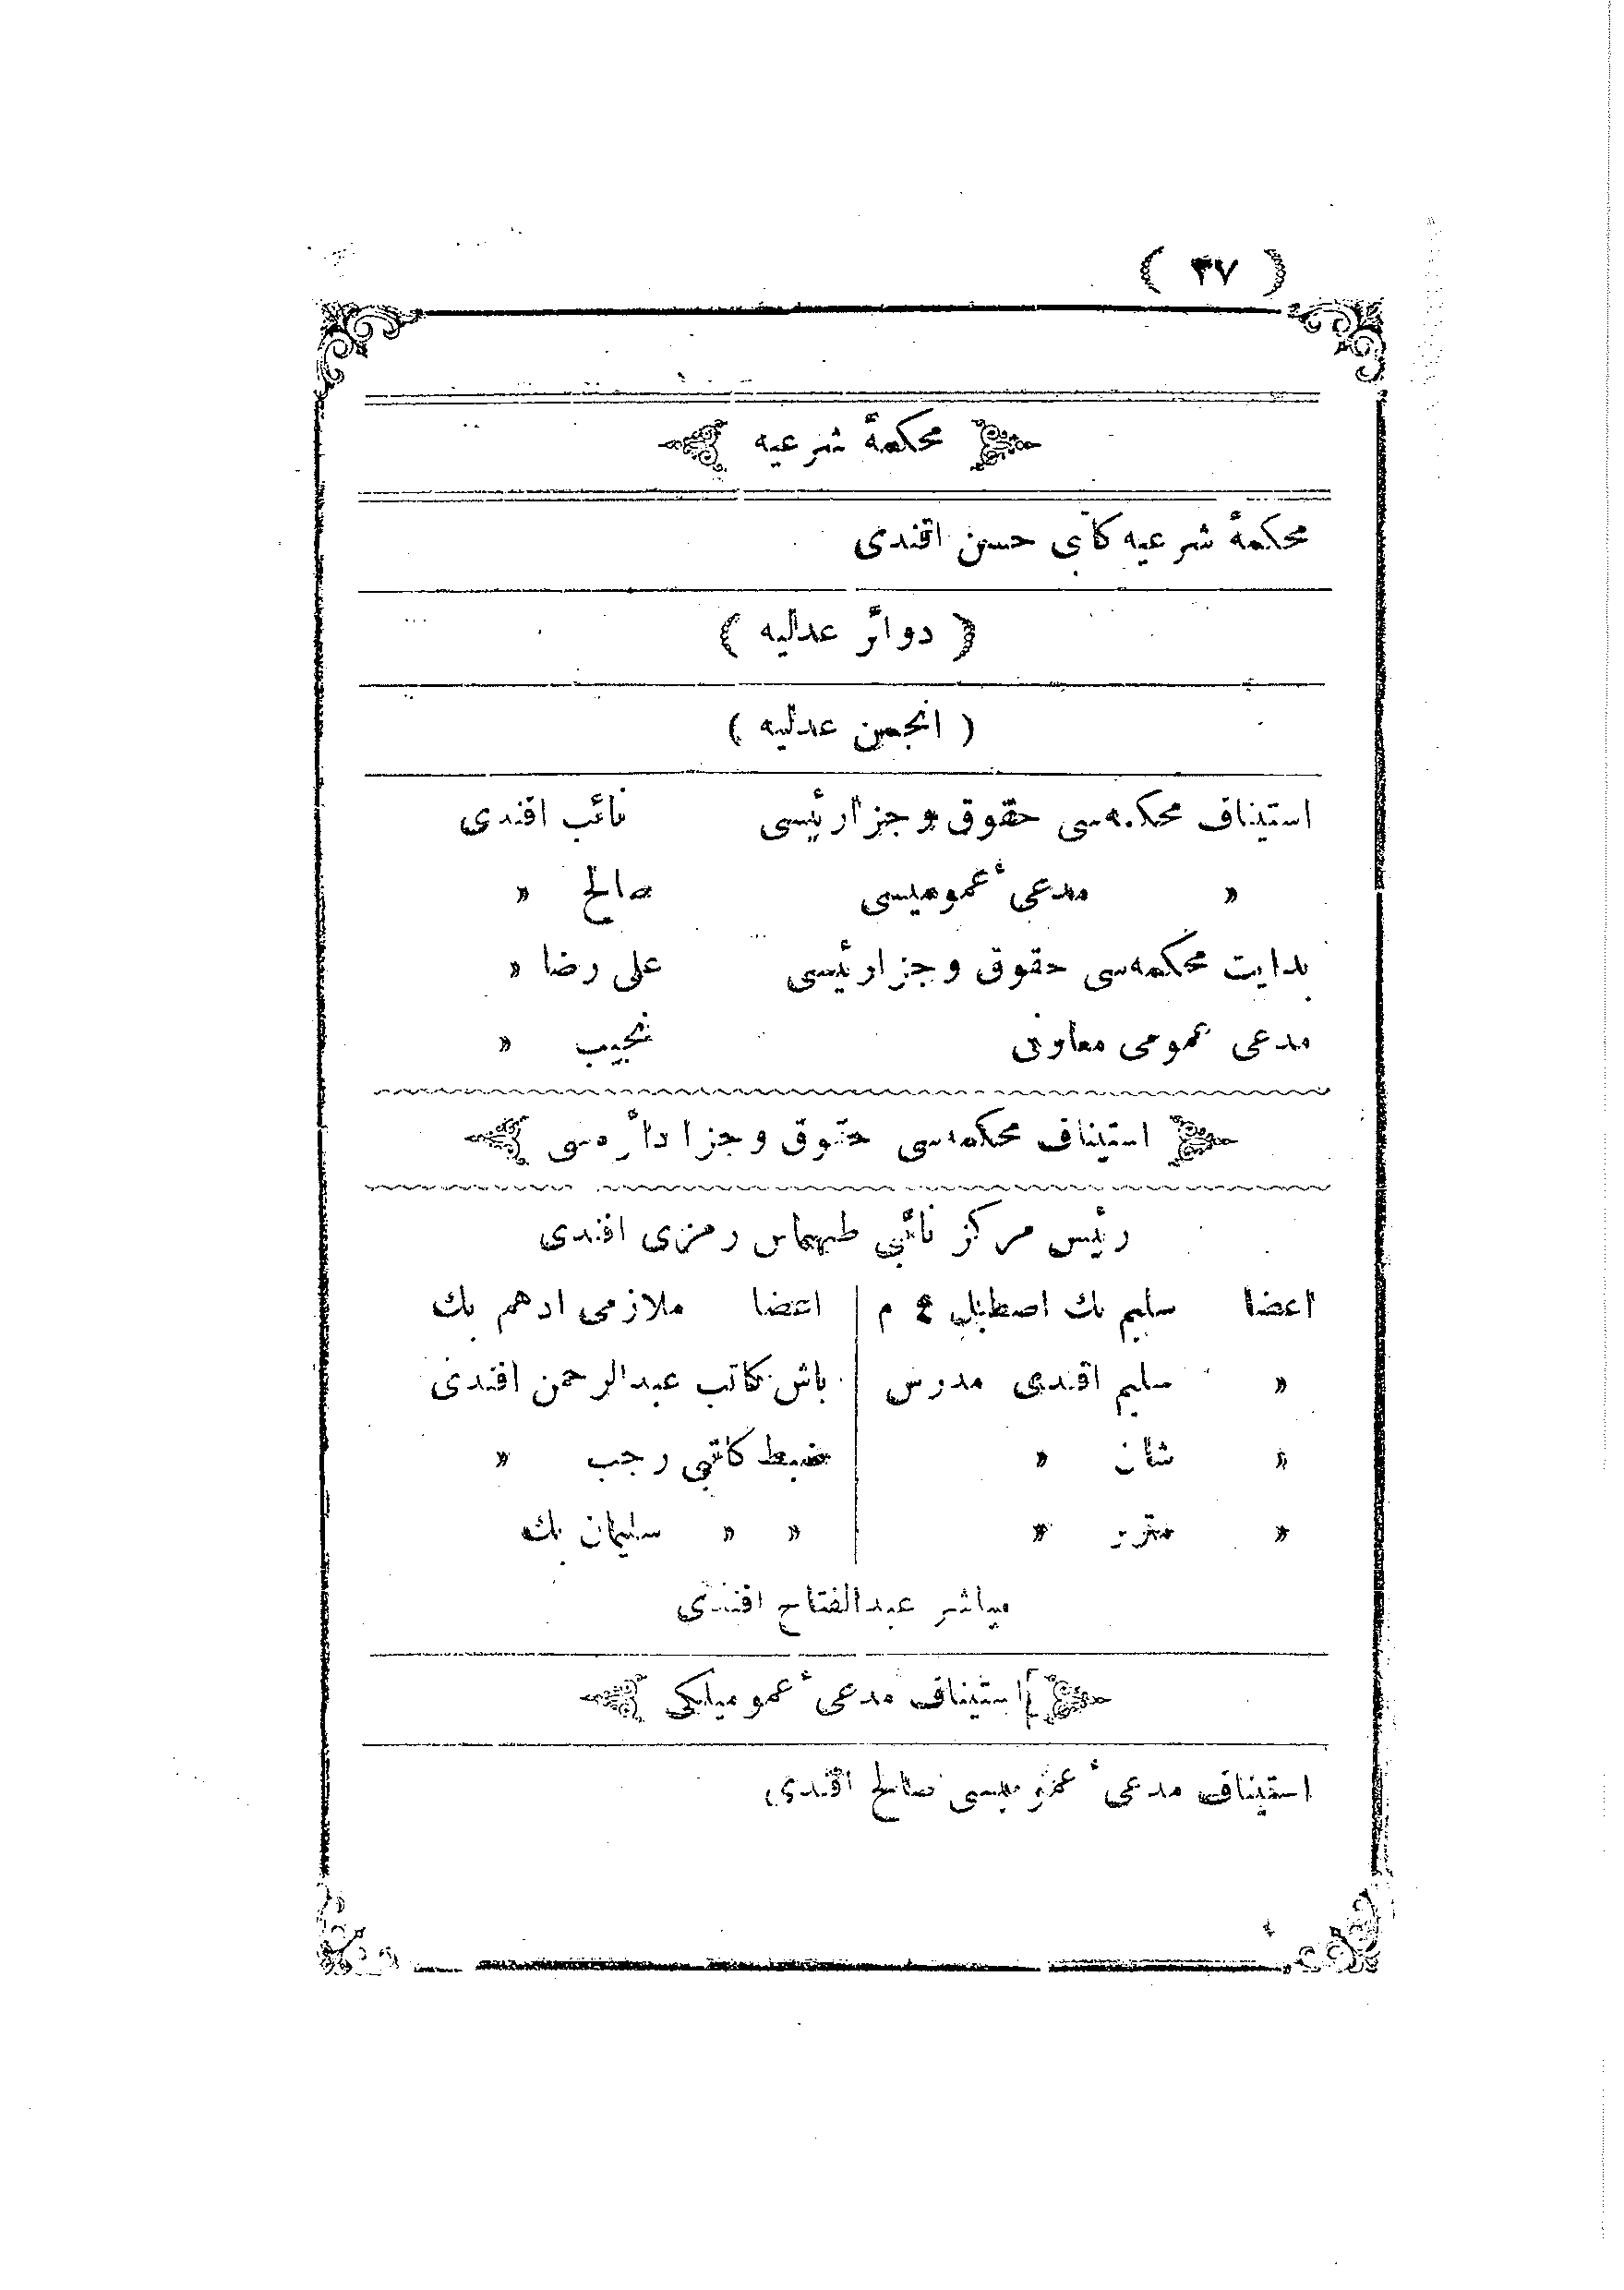 ( ٣٧ )
محكمهٔ شرعيه
محكمهٔ شرعيه كاتبى حسن افندى
( دوائر عدليه )
( انجمن عدليه )
استيناف محكمه‌سى حقوق و جزا رئيسى نائب افندى
» مدعىء عموميسى صالح »
بدايت محكمه‌سى حقوق و جزا رئيسى على رضا »
مدعى عمومى معاونى نجيب »
استيناف محكمه‌سى حقوق و جزا دائره‌سى
رئيس مركز نائبى طهماس رمزى افندى
اعضا سليم بك اصطبل ع م اعضا ملازمى ادهم بك
» سليم افندى مدرس باش كاتب عبدالرحمن افندى
» شان » ضبط كاتبى رجب »
» » » » سليمان بك
مباشر عبدالفتاح افندى
استيناف مدعىء عموميلكى
استيناف مدعىء عموميسى صالح افندى